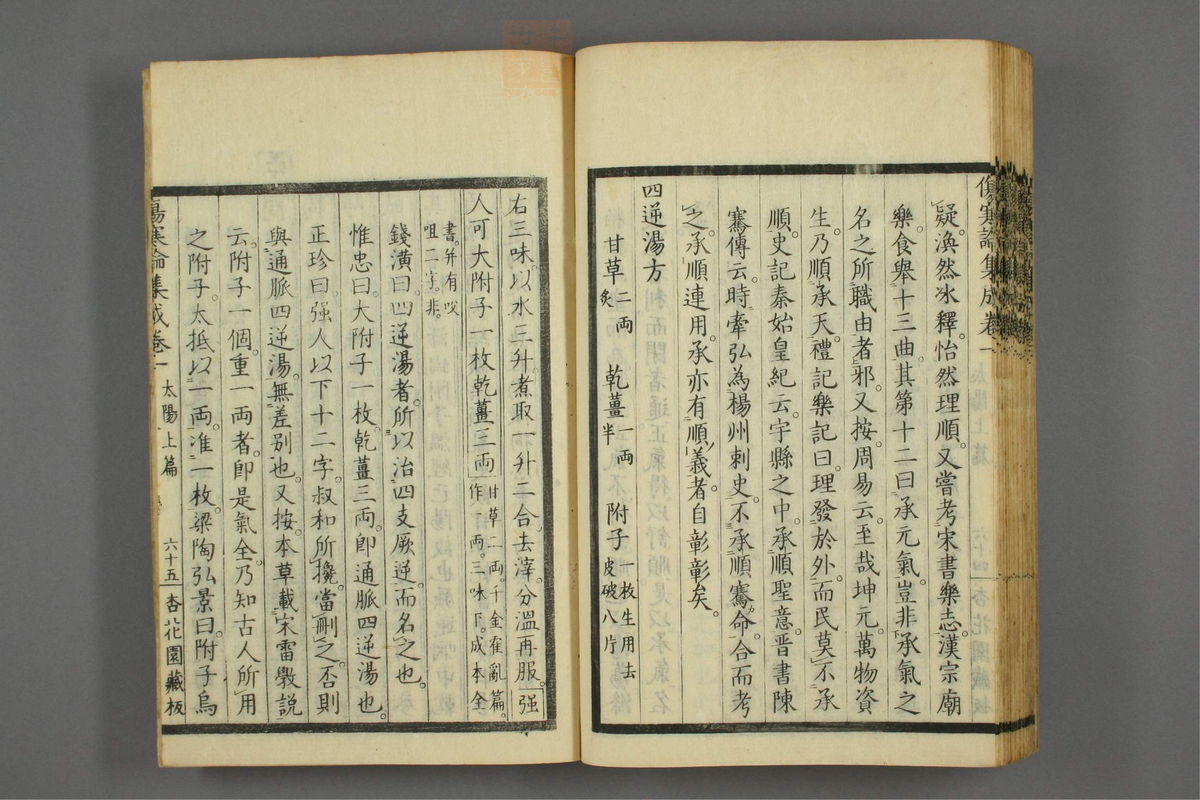 傷寒論集成卷一
疑渙然冰釋怡然理順又嘗考宋書樂志漢宗廟
樂食舉十三曲其第十二曰承元氣豈非承氣之
名之所職由者邪又按周易云至哉坤元萬物資
生乃順承天禮記樂記曰理發於外而民莫不承
順史記秦始皇紀云宇縣之中承順聖意晋書陳
騫傳云時牽弘為楊州刺史不承順騫命合而考
之承順連用承亦有順義者自彰彰矣
四逆湯方
甘草二兩炙 乾薑一兩半 附子一枚生用去皮破八片
右三味以水三升煮取一升二合去滓分溫再服强
人可大附子一枚乾薑三兩甘草二兩千金霍亂篇作一兩三味下成本全
書并有㕮咀二字非
錢潢曰四逆湯者所以治四支厥逆而名之也
惟忠曰大附子一枚乾薑三兩卽通脈四逆湯也
正珍曰强人以下十二字叔和所攙當刪之否則
與通脈四逆湯無差別也又按本草載宋雷斅説
云附子一個重一兩者卽是氣全乃知古人所用
之附子太抵以一兩准一枚梁陶弘景曰附子烏
傷寒論集成卷一 太陽上篇 六十五 杏花園藏板